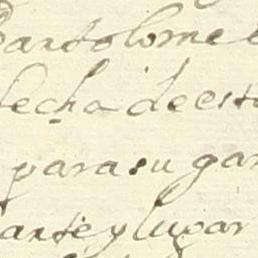 Bartolome
fecha de esta
para su gar
ante y lugar